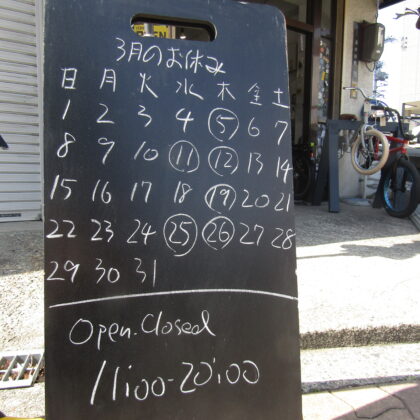 3月のお休み
日 月 火 水 木 金 土
1 2 3 4 5 6 7
8 9 10 11 12 13 14
15 16 17 18 19 20 21
22 23 24 25 26 27 28
29 30 31
Open.Closed
11:00-20:00